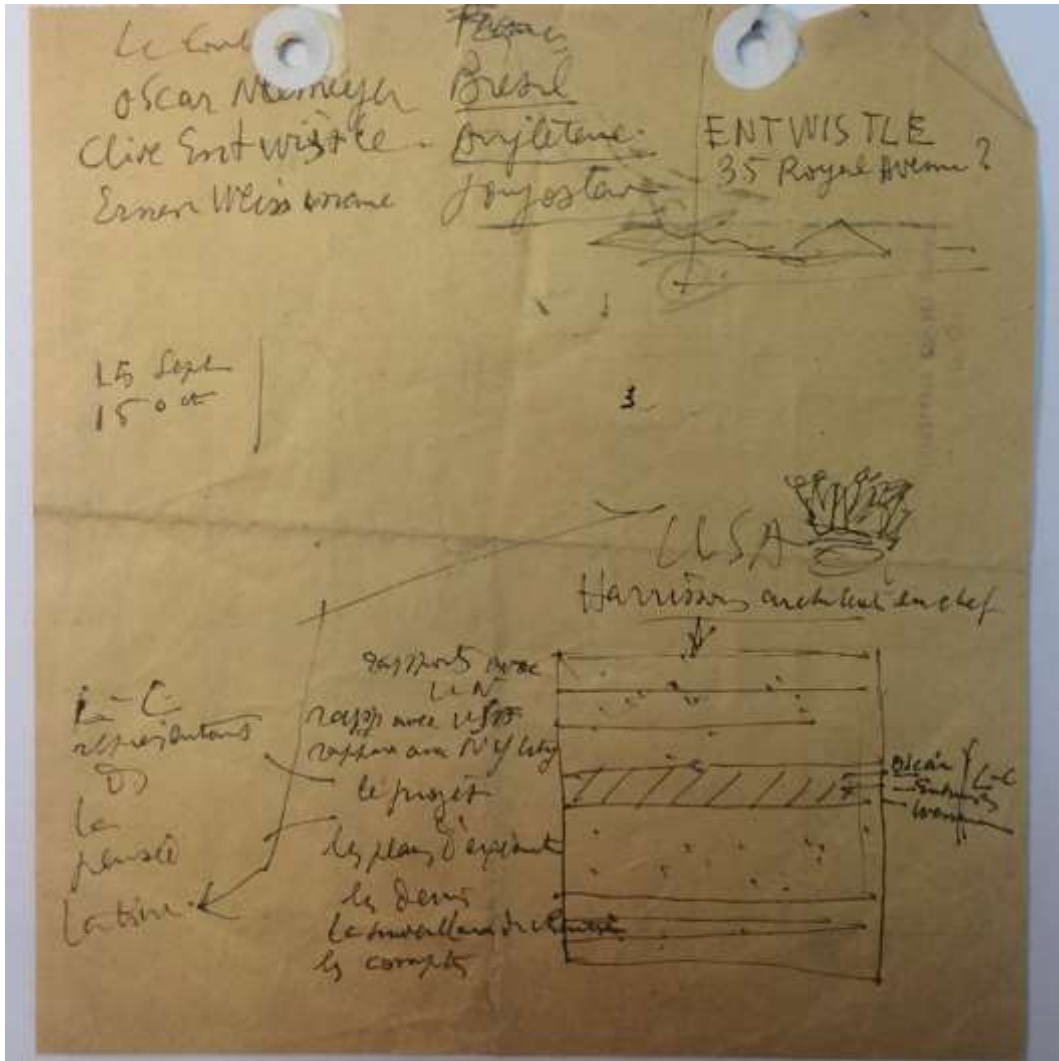 Le Corb France
Oscar Niemeyer Brésil
Clive Entwistle. Angleterre.
ENTWISTLE
35 Royal Avenue?
Ernest Weissmann Yougoslav
15 Sept
15 oct
3
USA
Harrison architecte en chef
rapports avec
UN
rapp avec USA
rapport avec N Y City
le projet
et
les plans d'exécut
les devis
la surveillance du chantier
les comptes
L-C
représentant
de
la
pensée
latine.
Oscar
Entwis
L-C